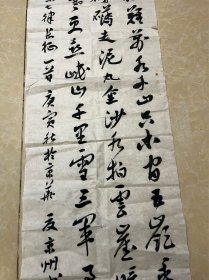 難萬水千山只等闲五岭
礴走泥丸金沙水拍雲崖暖
更喜岷山千里雪三軍
律长征一首庚寅秋於京華夏京州